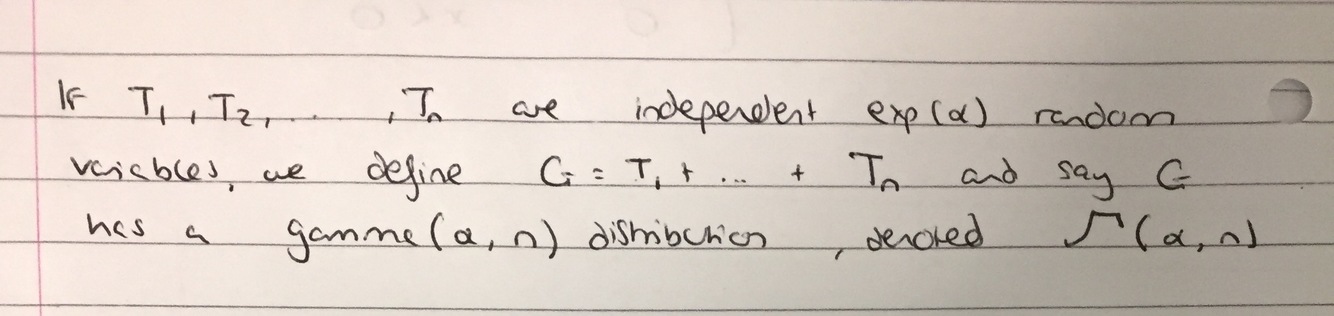 If T₁, T₂, ..... , Tₙ are independent exp(α) random
variables, we define G = T₁ + ... + Tₙ and say G
has a gamma(α, n) distribution, denoted Γ(α, n)